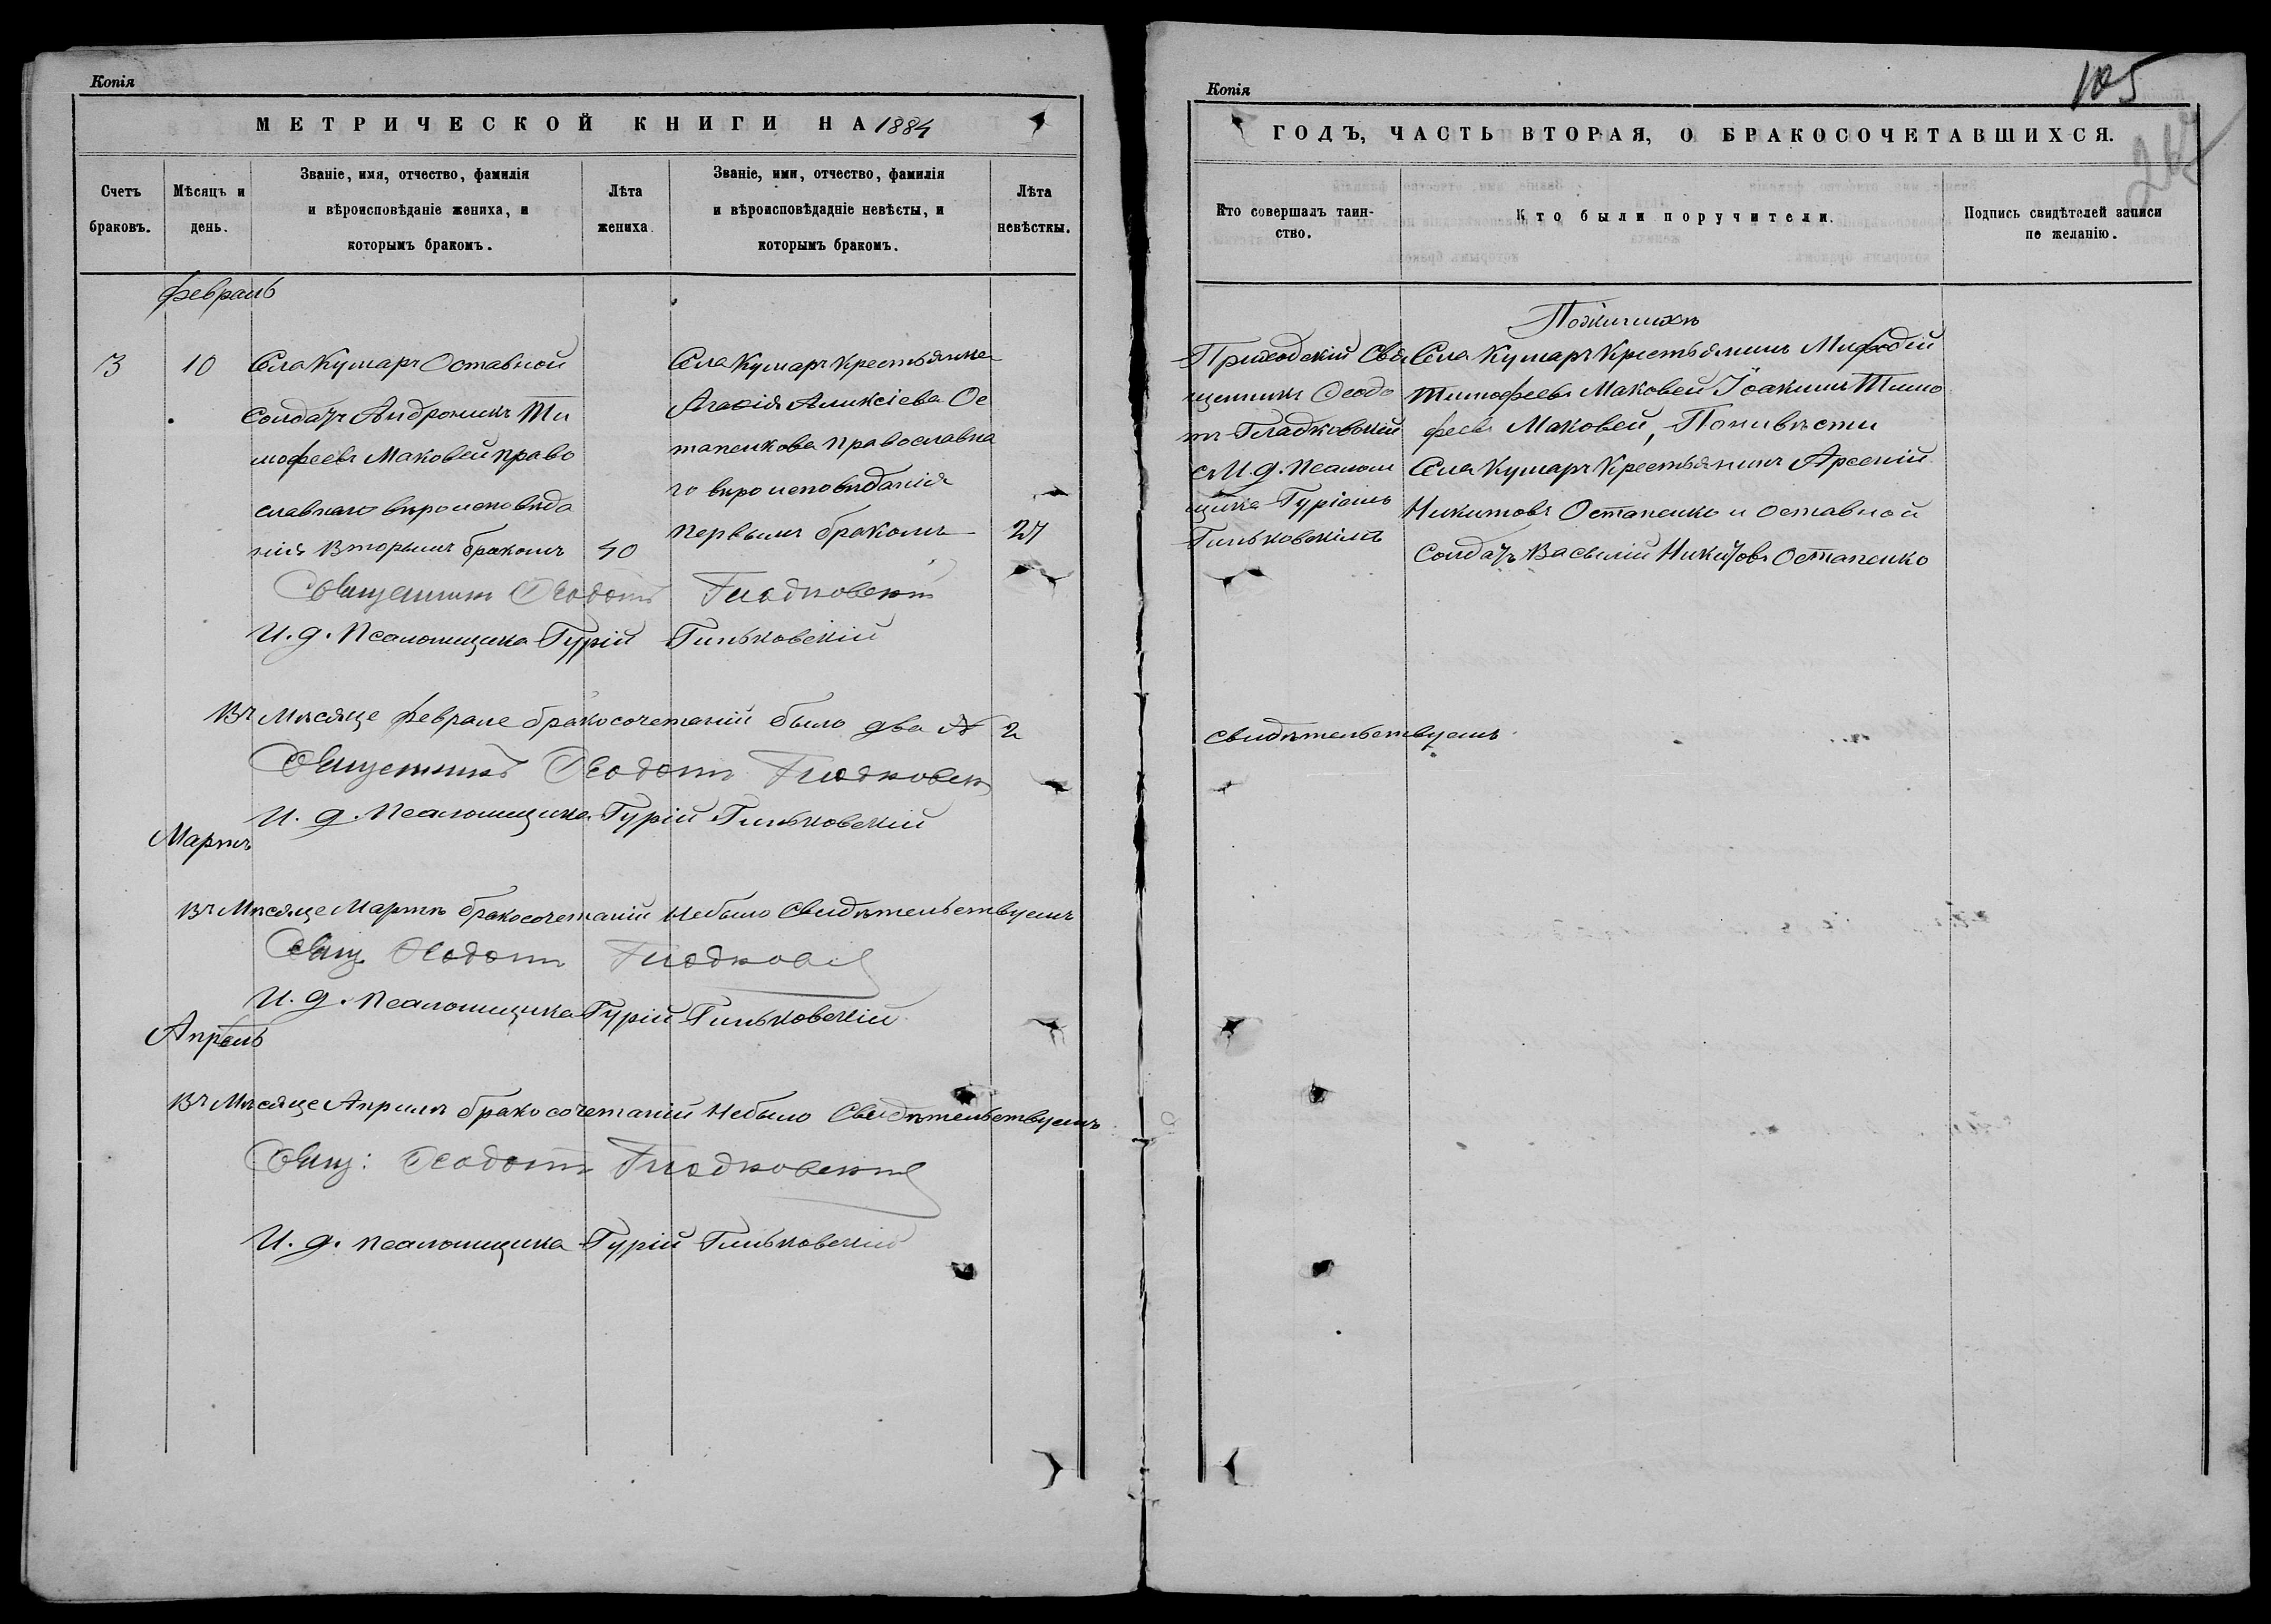 Копія
МЕТРИЧЕСКОЙ КНИГИ НА 1884
Счетъ браковъ.
Мѣсяцъ и день.
Званіе, имя, отчество, фамилія
и вѣроисповѣданіе жениха, и
которымъ бракомъ.
Лѣта жениха
Званіе, ими, отчество, фамилія
и вѣроисповѣдадніе невѣсты, и
которымъ бракомъ.
Лѣта невѣсткы.
Февраль
3
10
Села Кумаръ Оставной
Солдатъ Андроникъ Ти
мофеевъ Маковей право
славнаго вѣроисповѣда
нія Вторымъ бракомъ
40
Села Кумаръ Крестьянка
Агафія Аликсіева Ос
тапенкова православна
го вѣроисповѣданія
первымъ бракомъ
27
Священникъ Феодотъ Гладковскій
И. д. Псаломщика Гурій Гиньковскій
Въ Мѣсяце Феврале бракосочетаній было два № 2
Священникъ Феодотъ Гладковск
И. д. Псаломщика Гурій Гиньковскій
Мартъ
Въ Мѣсяце Мартѣ бракосочетаній Небыло Свидѣтельствуемъ
Свящ Феодотъ Гладковс
И. д. Псаломщика Гурій Гиньковскій
Апрель
Въ Мѣсяце Априлѣ бракосочетаній Небыло Свидѣтельствуемъ
Свящ: Феодотъ Гладковскій
И. д. псаломщика Гурій Гиньковскій
Копія
105
ГОДЪ, ЧАСТЬ ВТОРАЯ, О БРАКОСОЧЕТАВШИХСЯ.
Кто совершалъ таин-
ство.
Кто были поручители.
Подпись свидѣтелей записи
по желанію.
Приходскій Свя
щенникъ Феодо
тъ Гладковскій
съ И. д. Псалом
щика Гуріемъ
Гиньковскимъ
Пожинихѣ
Села Кумаръ Крестьянинъ Мифодій
Тимофеевъ Маковей Іоакимъ Тимо
феевъ Маковей, Понивѣсти
Села Кумаръ Крестьянинъ Арсеній
Никитовъ Остапенко и оставной
Солдатъ Василій Никитовъ Остапенко
свидѣтельствуемъ